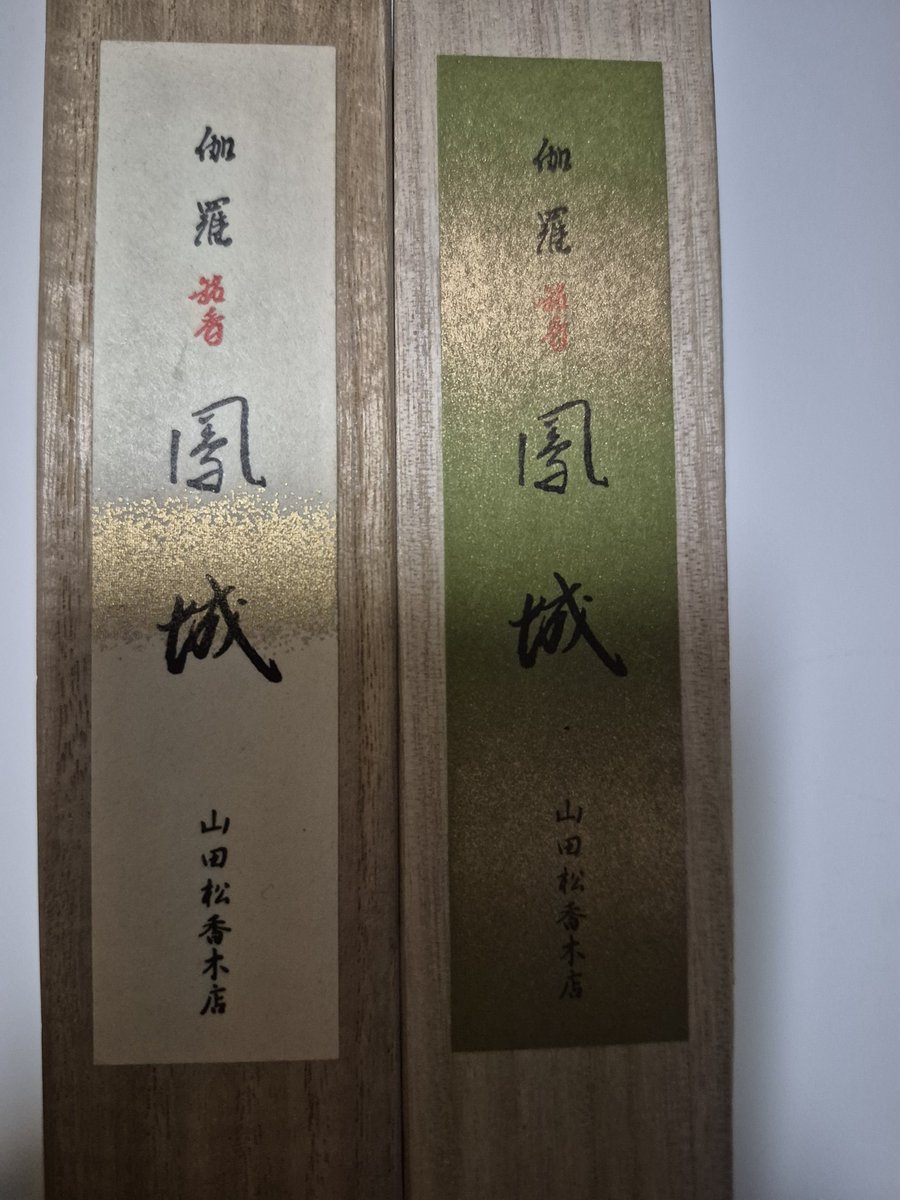 伽羅
銘香
鳳城
山田松香木店
伽羅
銘香
鳳城
山田松香木店